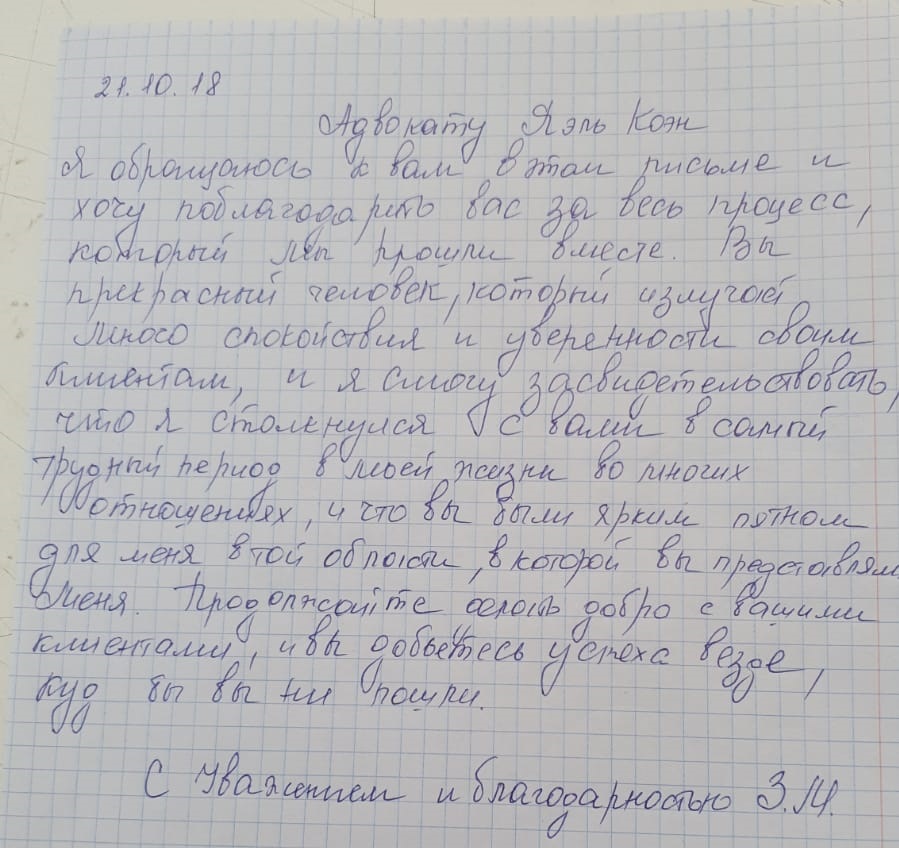 21.10.18
Адвокату Яэль Коэн
Я обращаюсь к вам в этом письме и
хочу поблагодарить вас за весь процесс,
который мы прошли вместе. Вы
прекрасный человек, который излучает
много спокойствия и уверенности своим
клиентам, и я смогу засвидетельствовать,
что я столкнулся с вами в самый
трудный период в моей жизни во многих
отношениях, и что вы были ярким пятном
для меня в той области, в которой вы представляли
меня. Продолжайте делать добро с вашими
клиентами, и вы добьетесь успеха везде,
куд бы вы ни пошли.
С Уважением и благодарностью З.М.